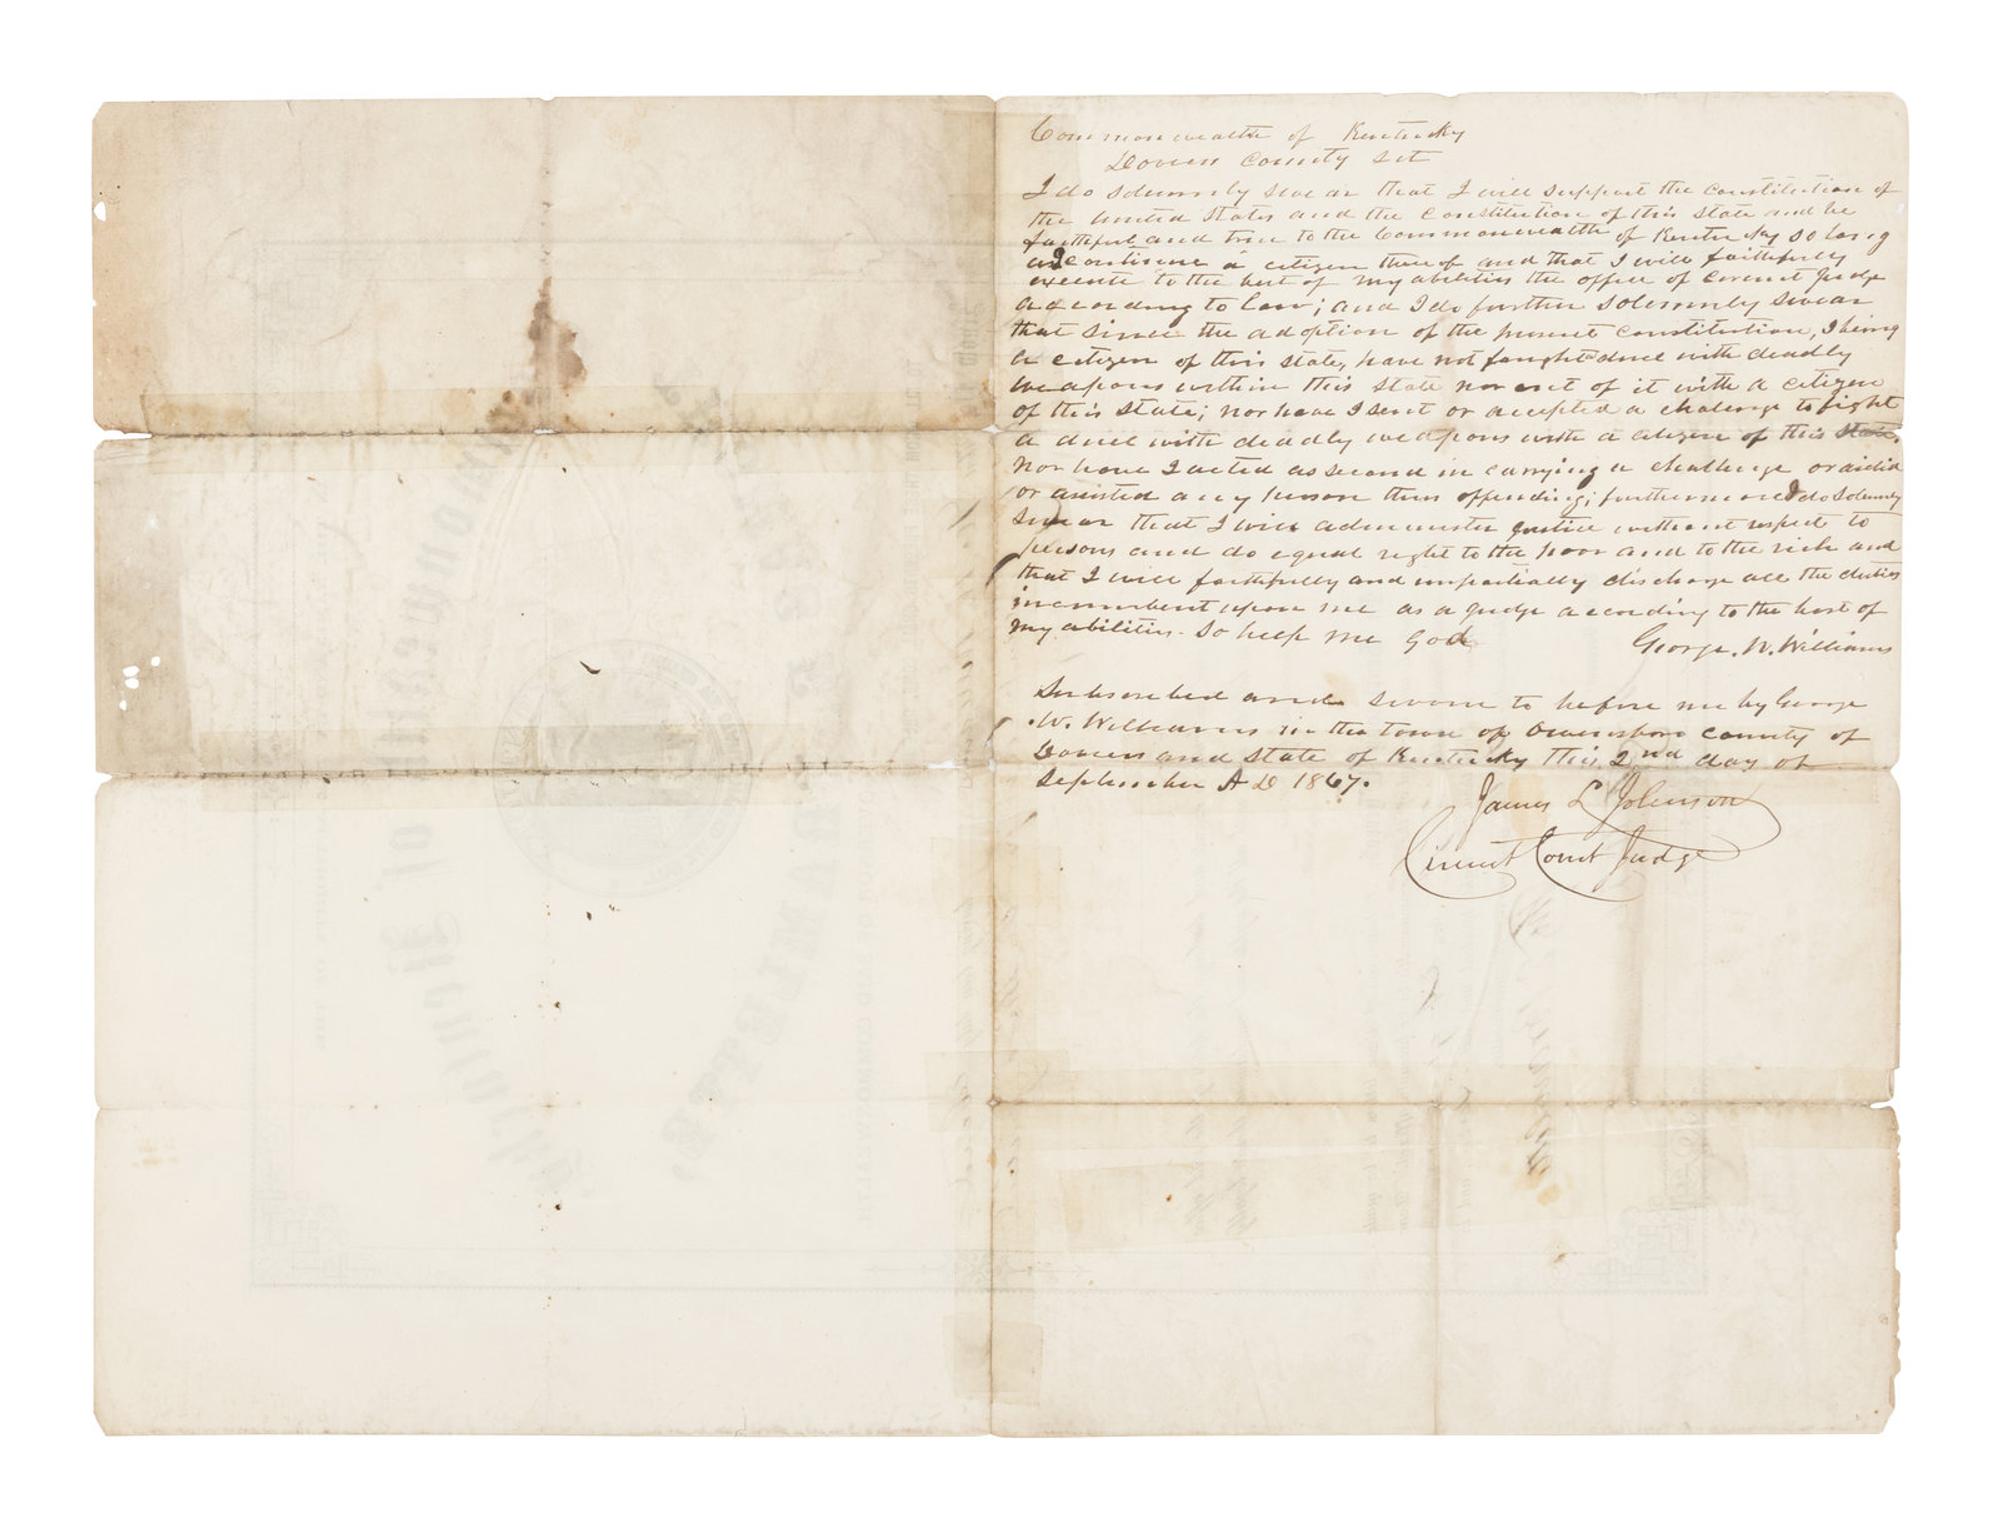 Commonwealth of Kentucky
Daviess County Sct
I do solemnly swear that I will support the Constitution of
the United States and the Constitution of this State and be
faithful and true to the Commonwealth of Kentucky so long
as I continue a citizen thereof and that I will faithfully
execute to the best of my abilities the office of Circuit Judge
according to law; and I do further solemnly swear
that since the adoption of the present Constitution, I being
a citizen of this state, have not fought a duel with deadly
weapons within this State nor out of it with a citizen
of this State; nor have I sent or accepted a challenge to fight
a duel with deadly weapons with a citizen of this State,
Nor have I acted as second in carrying a challenge or aided
or assisted any person thus offending; furthermore I do Solemnly
Swear that I will administer justice without respect to
persons and do equal right to the poor and to the rich and
that I will faithfully and impartially discharge all the duties
incumbent upon me as a judge according to the best of
my abilities. So help me God
George. W. Williams
Subscribed and sworn to before me by George
W. Williams in the town of Owensboro County of
Daviess and State of Kentucky this 2nd day of
September A D 1867.
James L Johnson
Circuit Court Judge